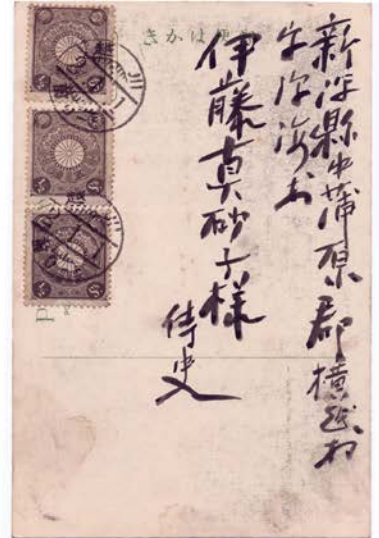 きかは便
新潟縣中蒲原郡横越村
字沢海
伊藤真砂子様
侍史